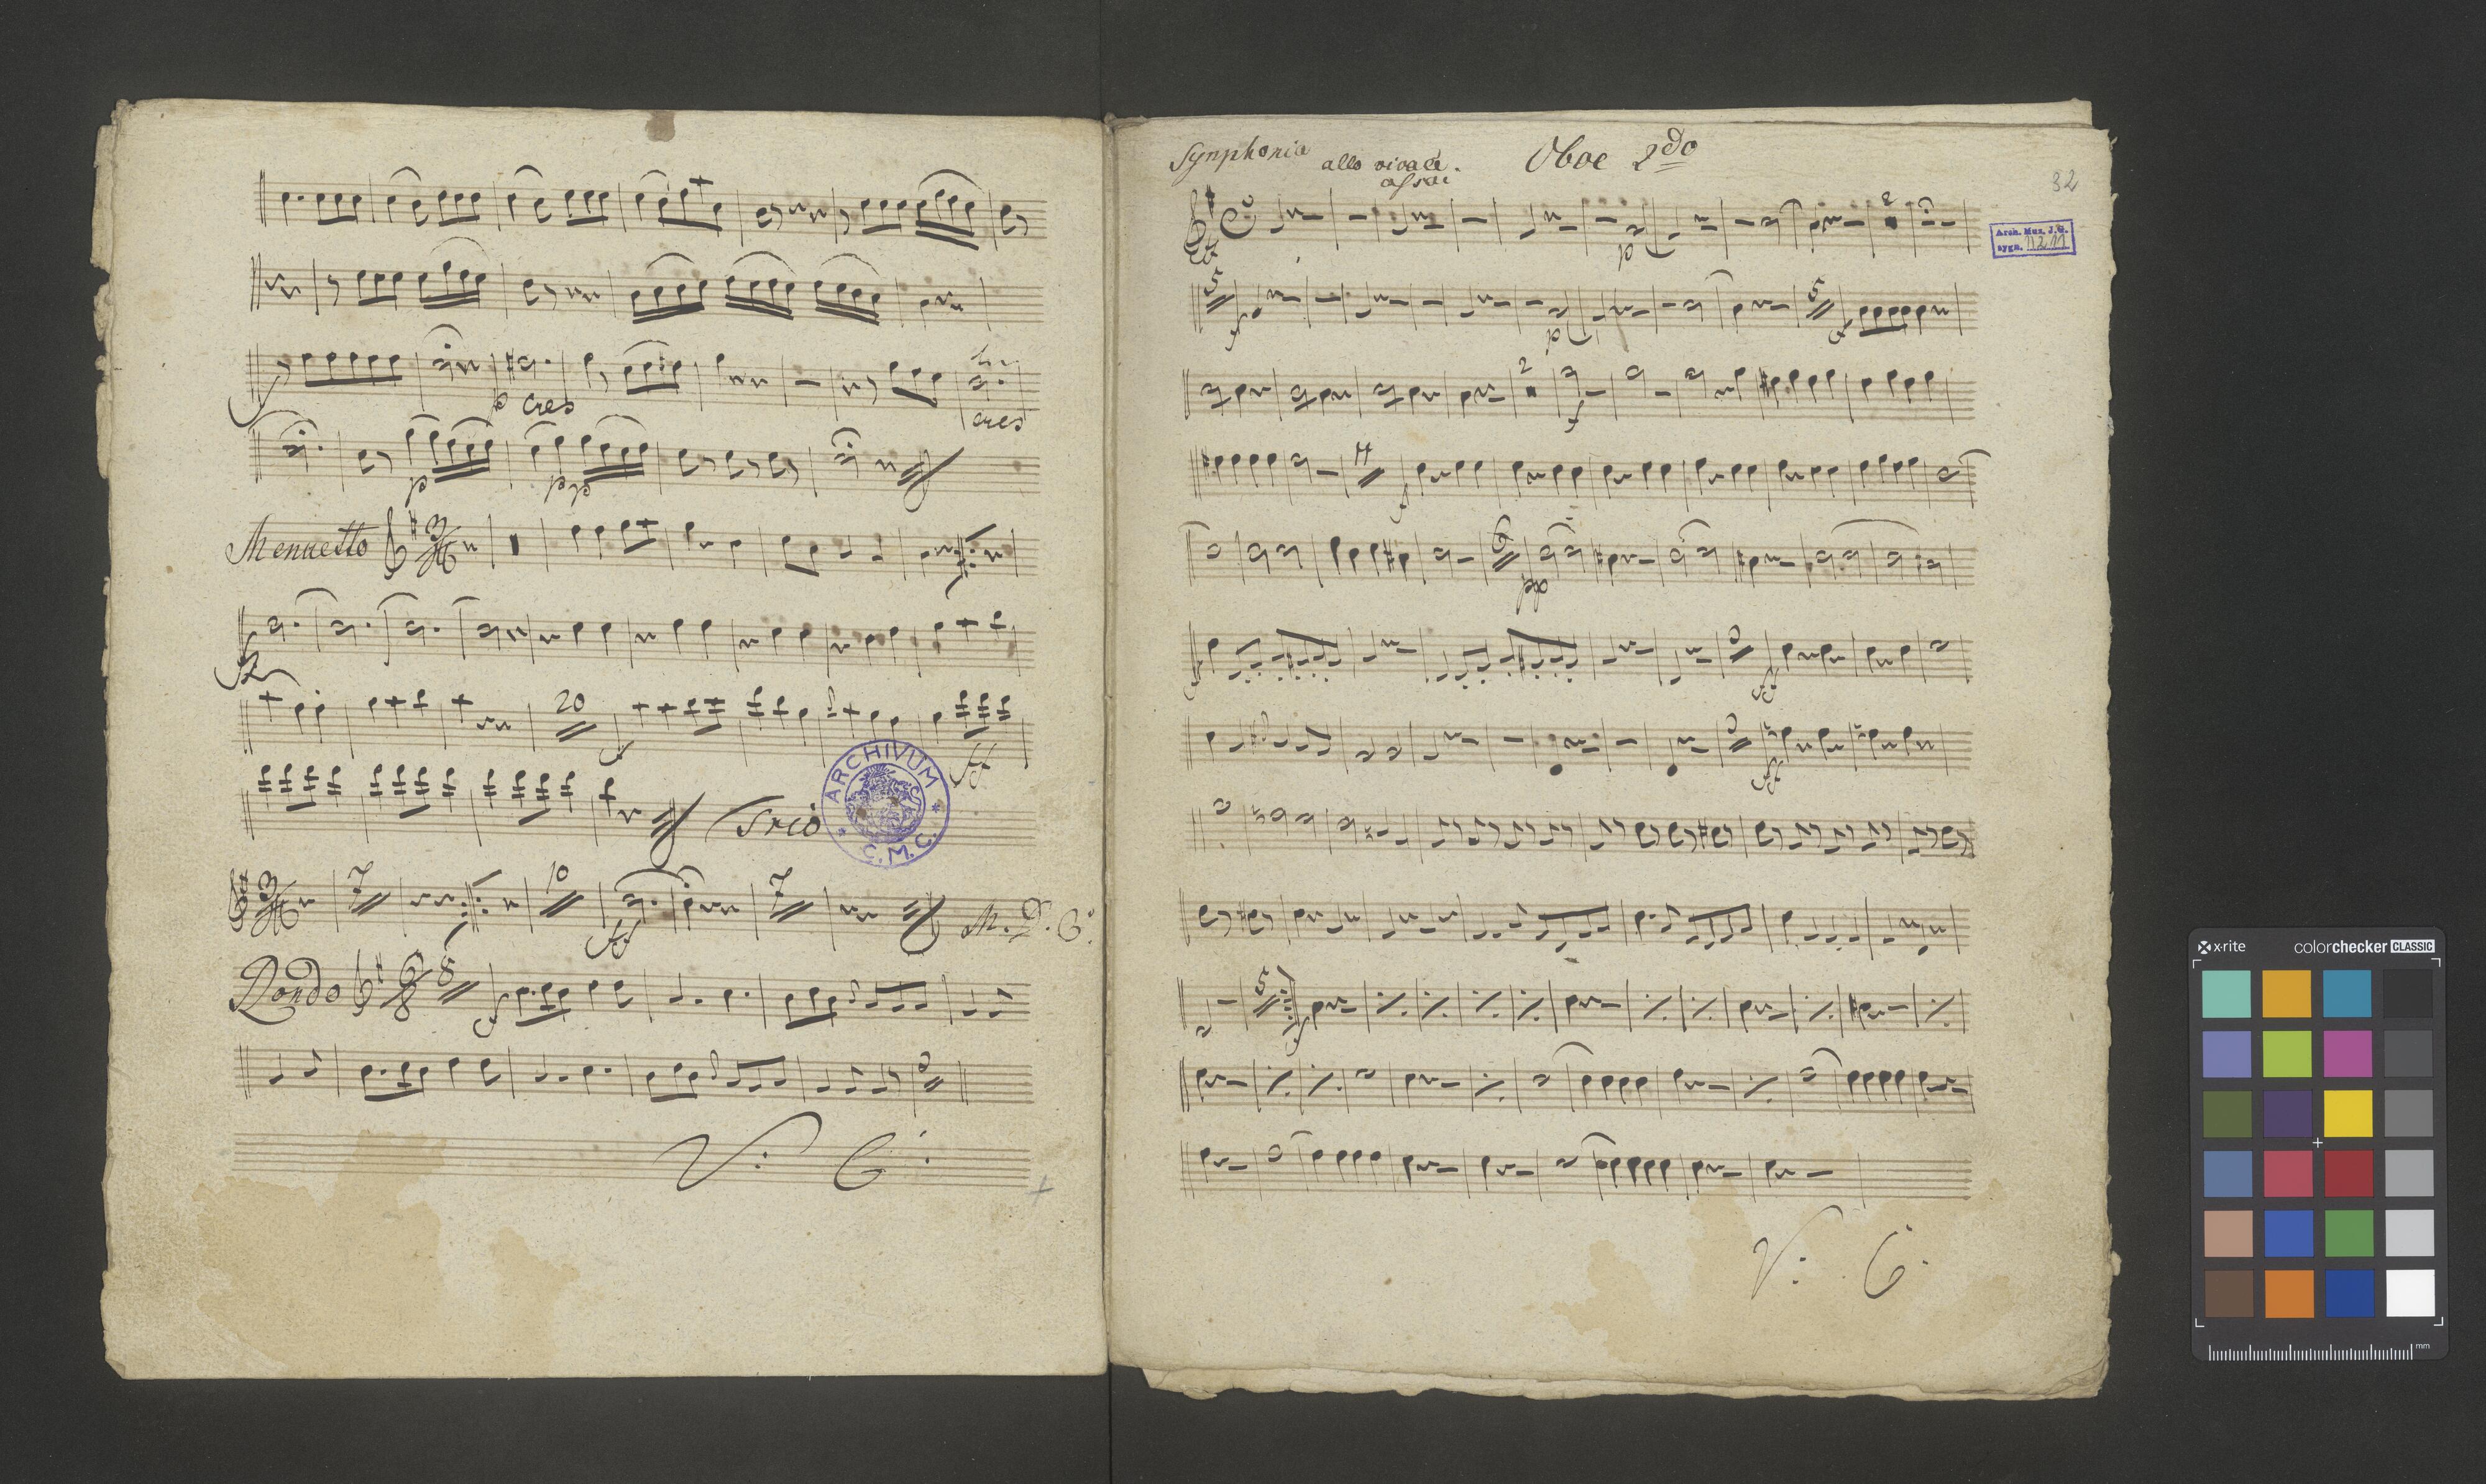 p cres
cres
p
pp
Menuetto 3
20
f
ff
Trio
ARCHIVUM C.M.C.
3 7 10 7
ff
M. D. C.
Rondo 6/8 8
f
V:
Synphonia allo vivace assai Oboe 2do
32
Arch. Muz. J.G.
sygn.
p
2
5
f
p
5
f
2
f
f
6
pp
ff
ff
5
f
V:
x-rite colorchecker CLASSIC
mm